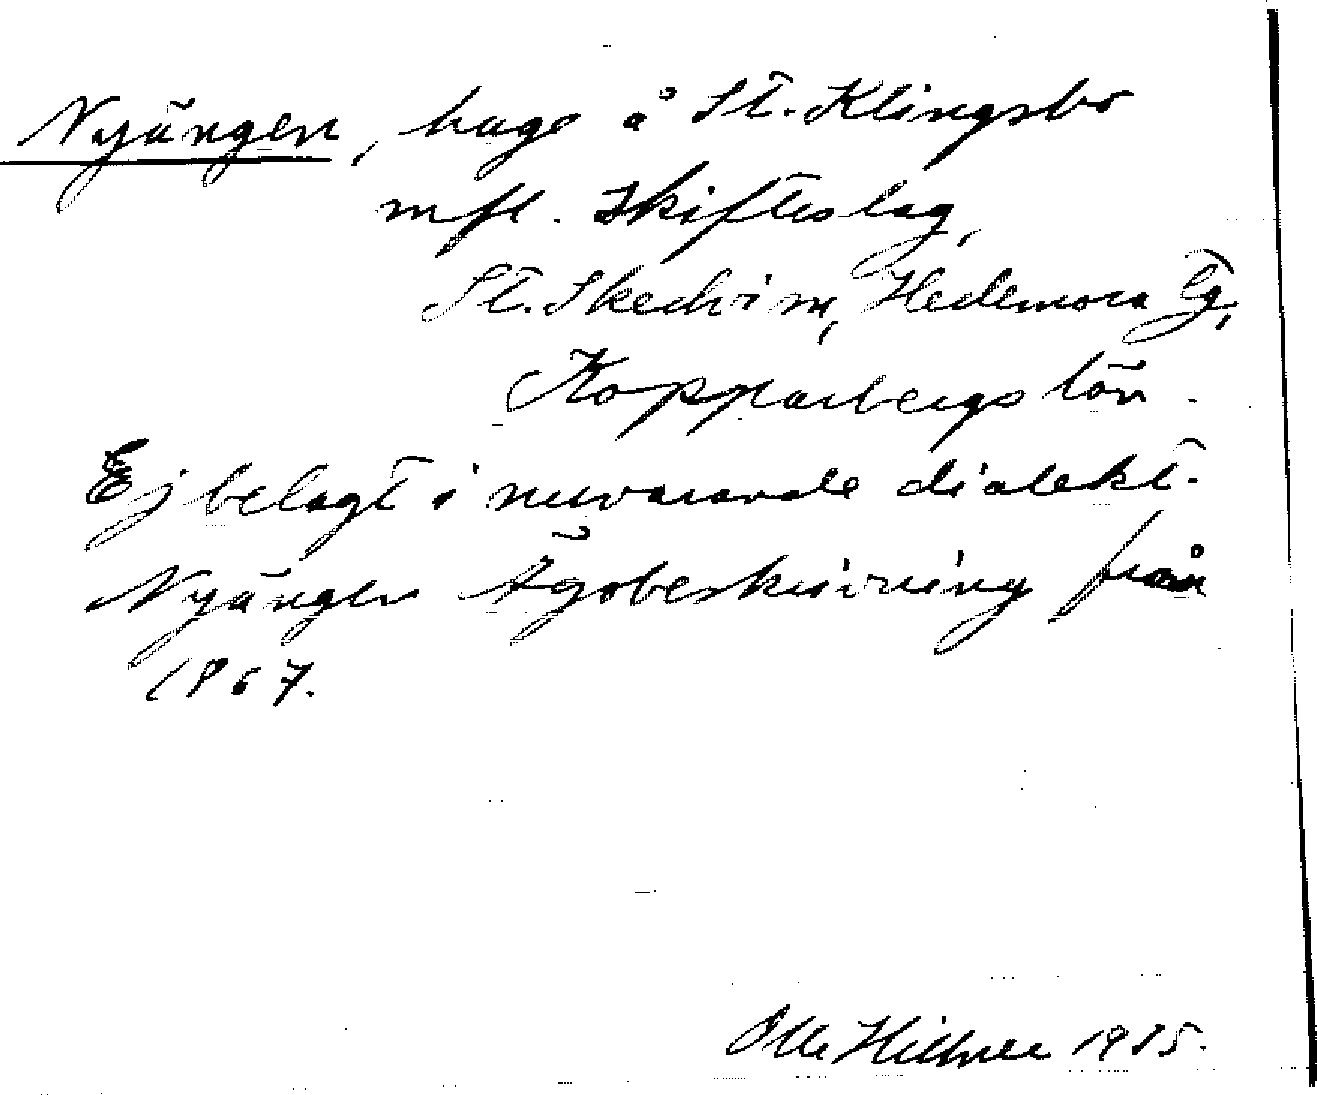 Nyängen, hage å St. Klingsbo
mfl. Skifteslag,
St. Skedvi sn, Hedemora tg,
Kopparbergs län.
Ej belagt i nuvarande dialekt.
Nyängen Ägobeskrivning från
1867.
Olle Hillner 1985.